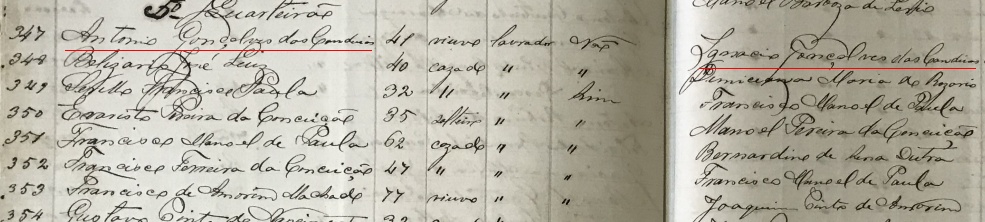 5º Quarteirão Manoel Barboza de
347 Antonio Gonçalves dos Candeias 41 viuvo lavrador Não Ignacio Gonçalves dos Candeias
348 Belizario José Luiz 40 cazado " " Maria do Rozario
349 Francisco Paula 32 " " Sim Francisco Manoel de Paula
350 Evaristo Pereira da Conceição 35 solteiro " " Manoel Pereira da Conceição
351 Francisco Manoel de Paula 62 cazado " " Bernardino de Dutra
352 Francisco Ferreira da Conceição 47 " " " Francisco Manoel de Paula
353 Francisco de Amorim Machado 77 viuvo " " Joaquim Pinto de Amorim
354 Gustavo Pinto do